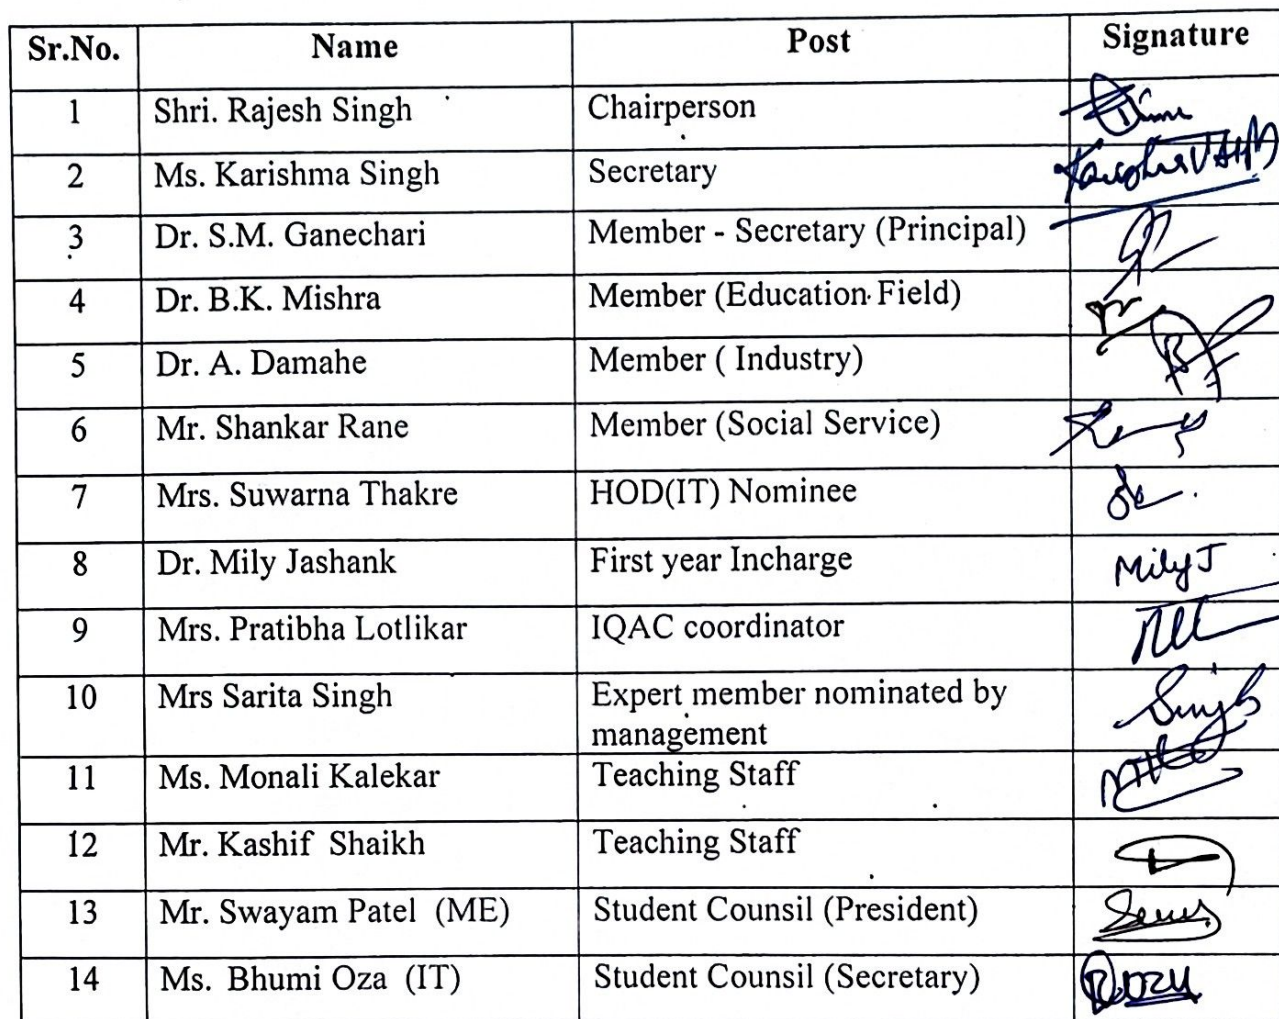 Sr.No. Name Post Signature
1 Shri. Rajesh Singh Chairperson
2 Ms. Karishma Singh Secretary
3 Dr. S.M. Ganechari Member - Secretary (Principal)
4 Dr. B.K. Mishra Member (Education Field)
5 Dr. A. Damahe Member ( Industry)
6 Mr. Shankar Rane Member (Social Service)
7 Mrs. Suwarna Thakre HOD(IT) Nominee
8 Dr. Mily Jashank First year Incharge MilyJ
9 Mrs. Pratibha Lotlikar IQAC coordinator
10 Mrs Sarita Singh Expert member nominated by Singh
management
11 Ms. Monali Kalekar Teaching Staff
12 Mr. Kashif Shaikh Teaching Staff
13 Mr. Swayam Patel (ME) Student Counsil (President)
14 Ms. Bhumi Oza (IT) Student Counsil (Secretary)